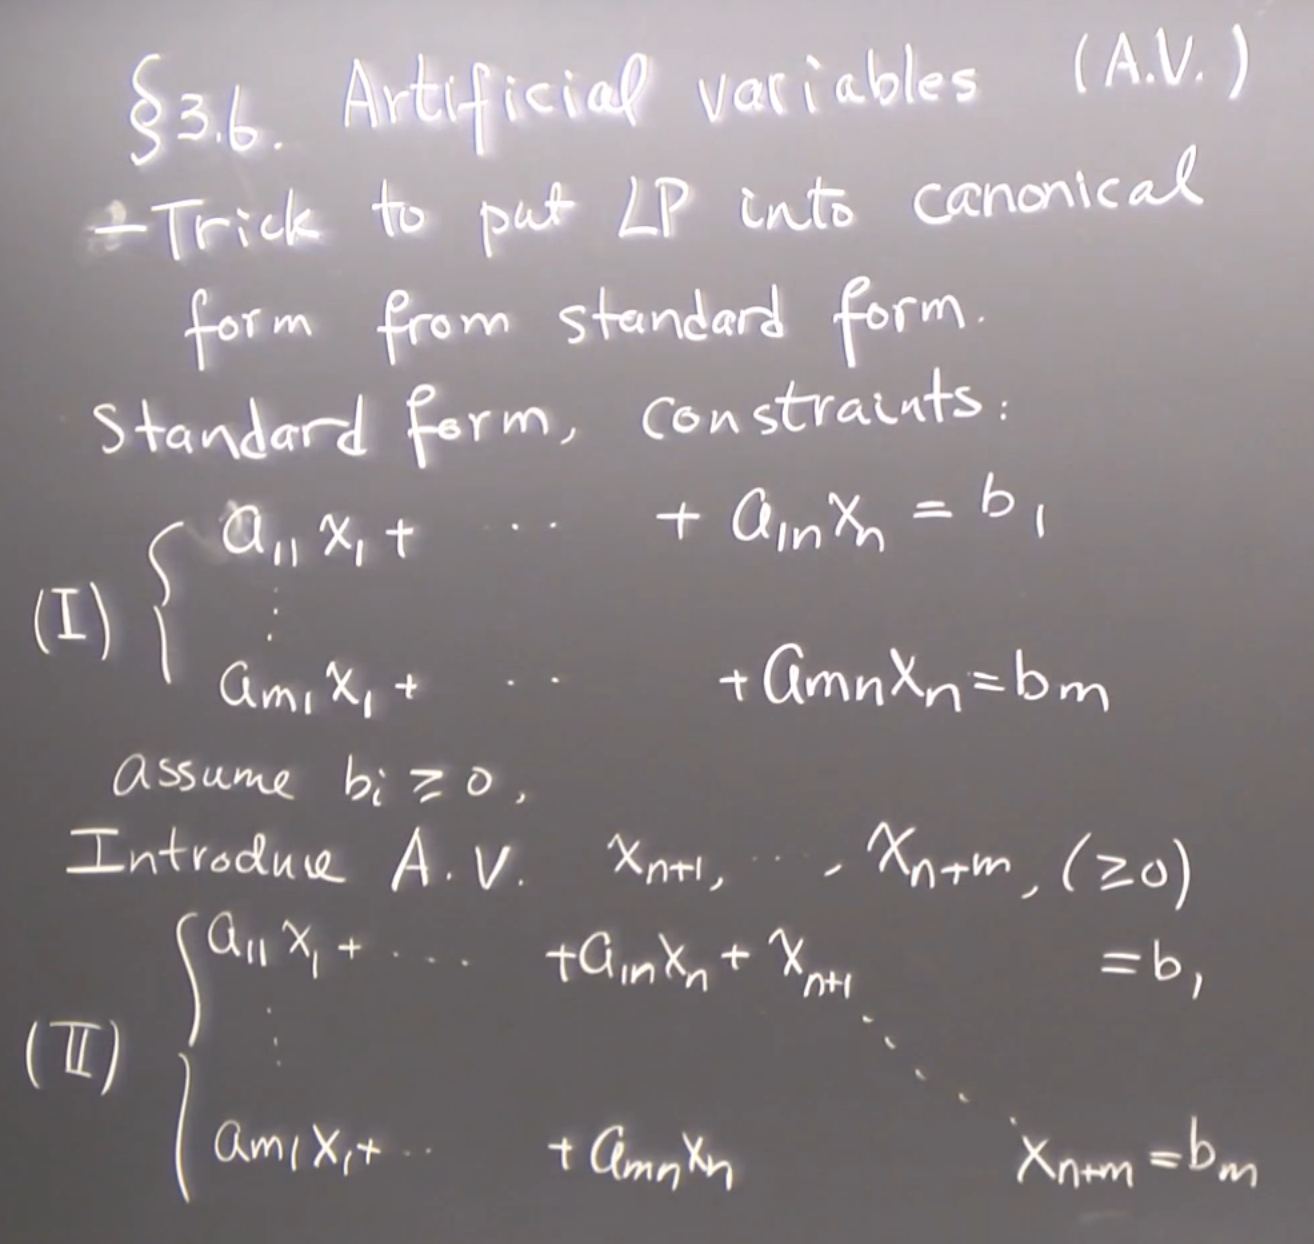 §3.6. Artificial variables (A.V.)
- Trick to put LP into canonical
form from standard form.
Standard form, constraints:
a₁₁ x₁ + ... + a₁ₙ xₙ = b₁
(I) { ⋮
aₘ₁ x₁ + ... + aₘₙ xₙ = bₘ
assume bᵢ ≥ 0,
Introduce A.V. xₙ₊₁, ..., xₙ₊ₘ, (≥0)
a₁₁ x₁ + .... + a₁ₙ xₙ + xₙ₊₁ = b₁
(II) { ⋮ ⋱
aₘ₁ x₁ + ... + aₘₙ xₙ xₙ₊ₘ = bₘ